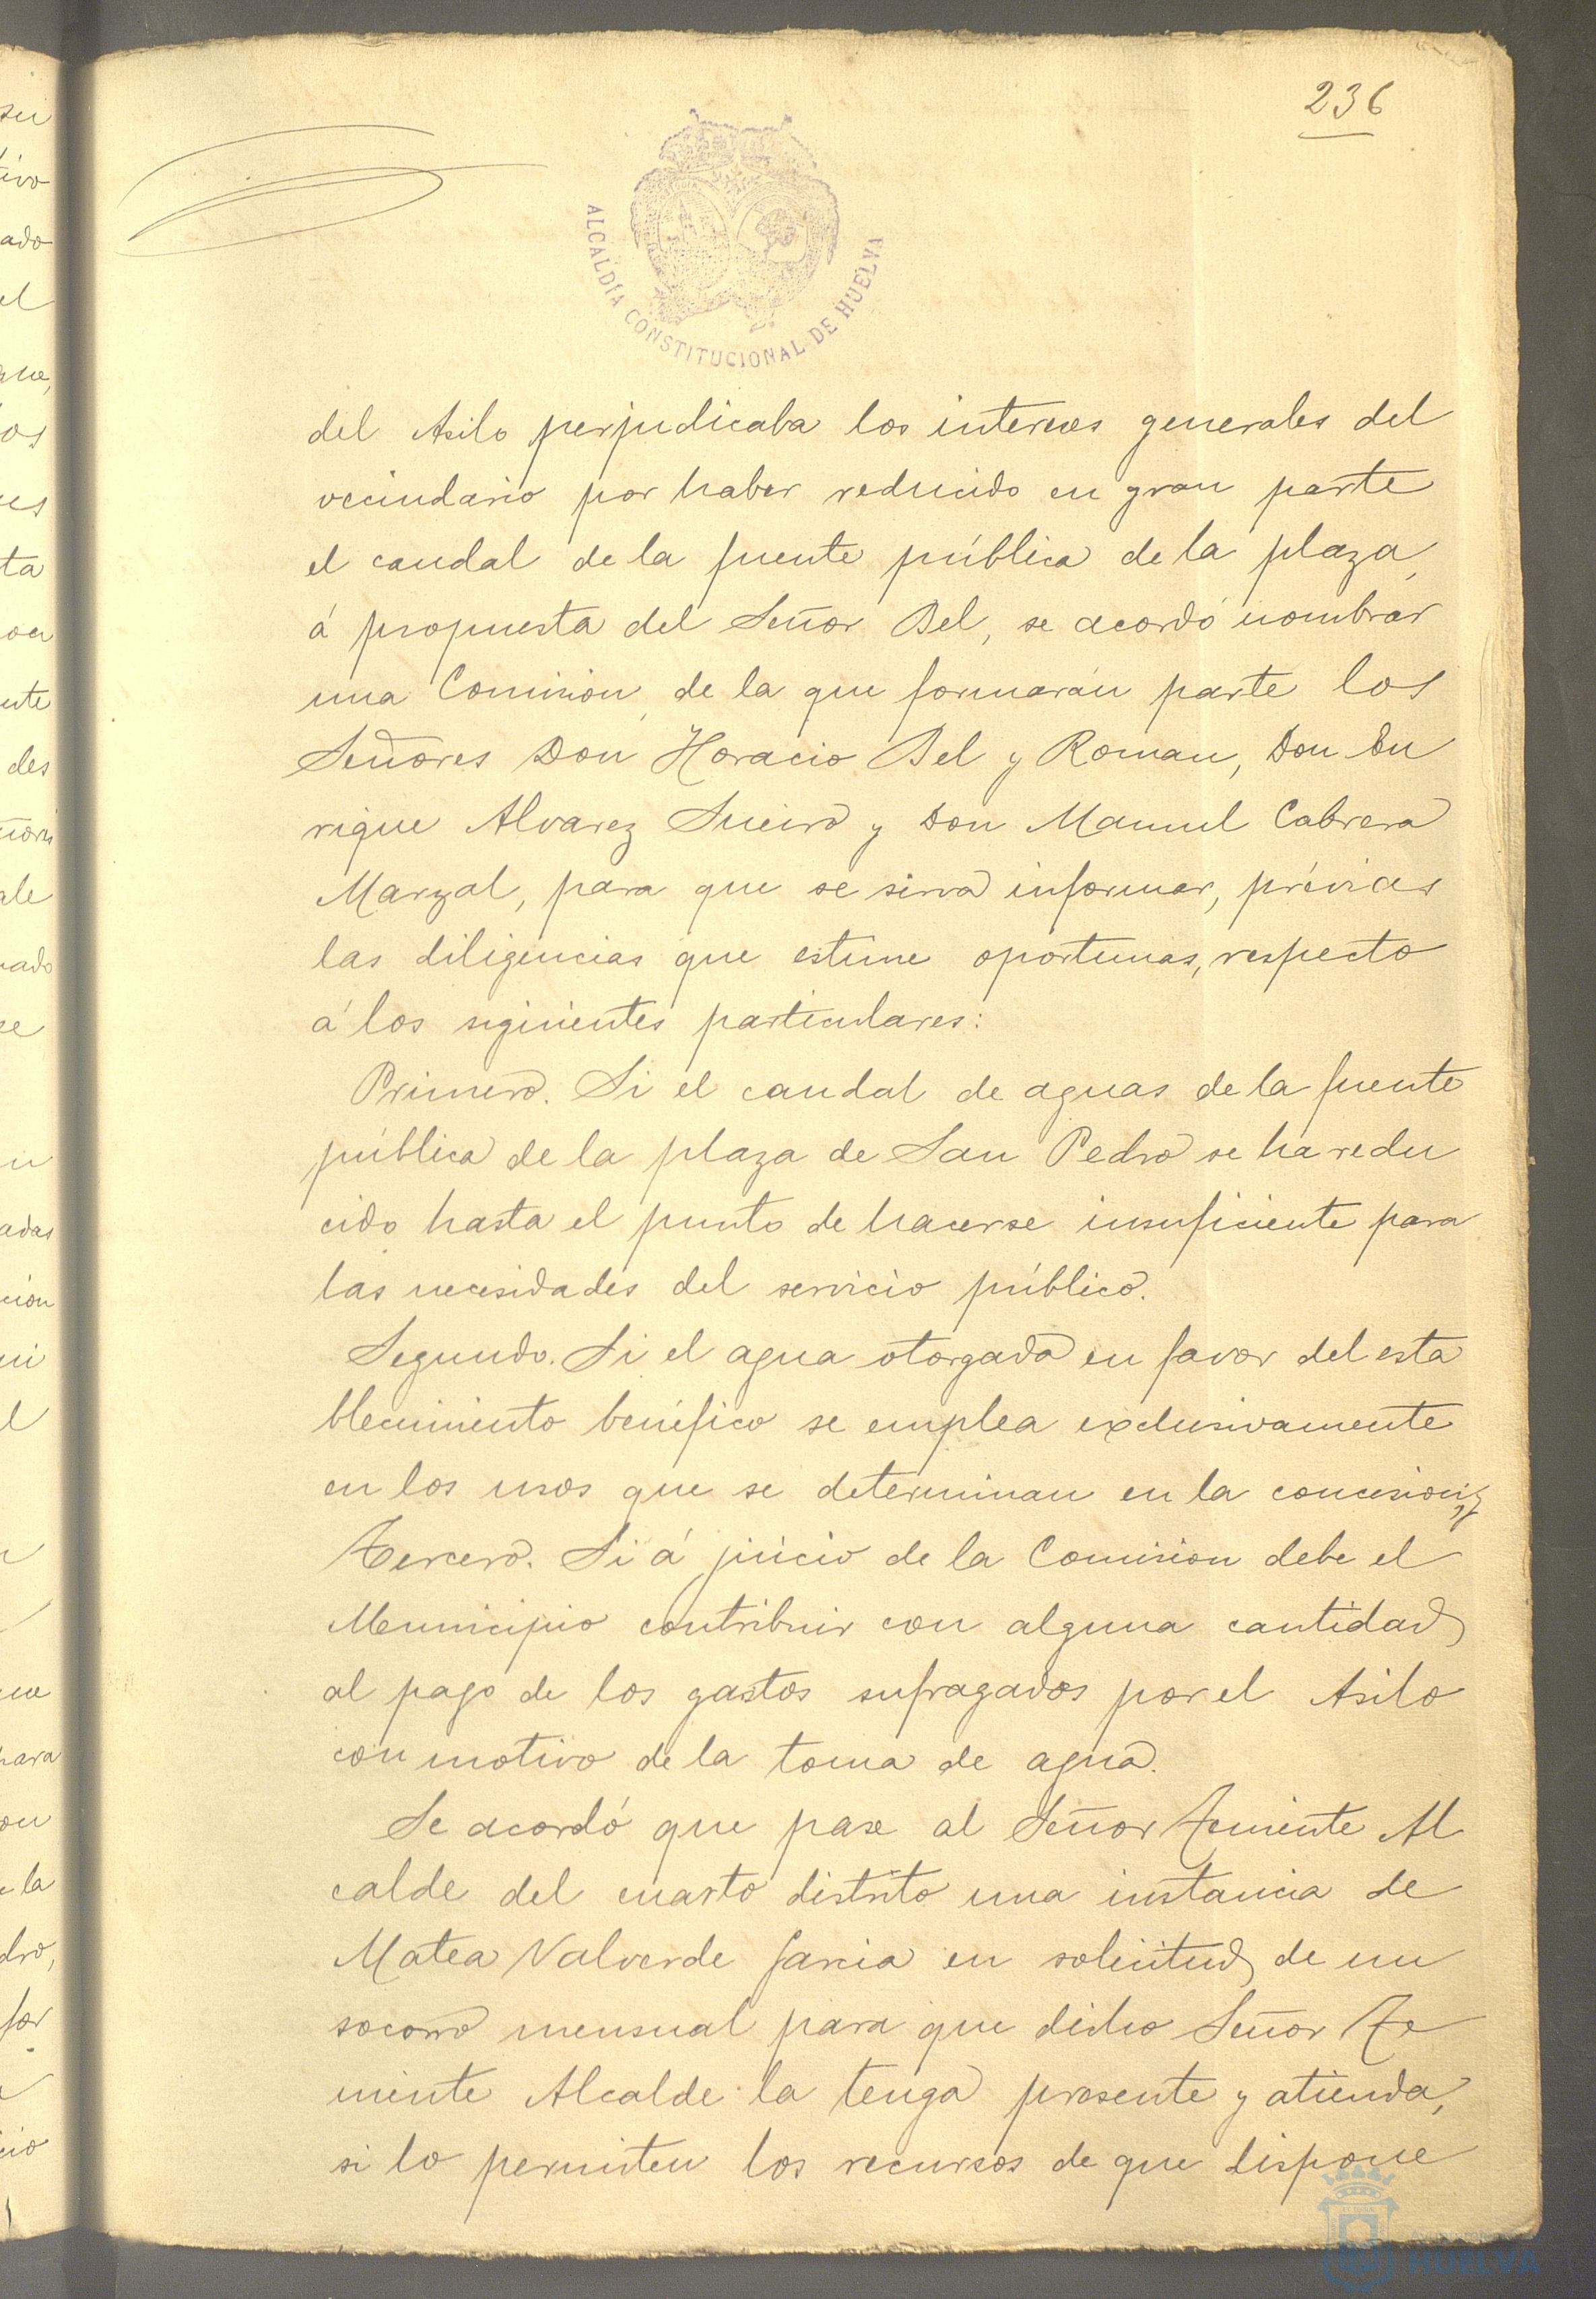 236
ALCALDÍA CONSTITUCIONAL DE HUELVA
del Asilo perjudicaba los intereses generales del
vecindario por haber reducido en gran parte
el caudal de la fuente pública de la plaza,
á propuesta del Señor Bel, se acordó nombrar
una Comision, de la que formarán parte los
Señores Don Horacio Bel y Roman, Don En
rique Alvarez Sueiro y Don Manuel Cabrera
Marzal, para que se sirva informar, prévias
las diligencias que estime oportunas, respecto
á los siguientes particulares:
Primero. Si el caudal de aguas de la fuente
pública de la plaza de San Pedro se ha redu
cido hasta el punto de hacerse insuficiente para
las necesidades del servicio público.
Segundo. Si el agua otorgada en favor del esta
blecimiento benéfico se emplea exclusivamente
en los usos que se determinan en la concesion; y
Tercero. Si á juicio de la Comision debe el
Municipio contribuir con alguna cantidad
al pago de los gastos sufragados por el Asilo
con motivo de la toma de agua.
Se acordó que pase al Señor Teniente Al
calde del cuarto distrito una instancia de
Matea Valverde Garcia en solicitud de un
socorro mensual para que dicho Señor Te
niente Alcalde la tenga presente y atienda,
si lo permiten los recursos de que dispone
HUELVA